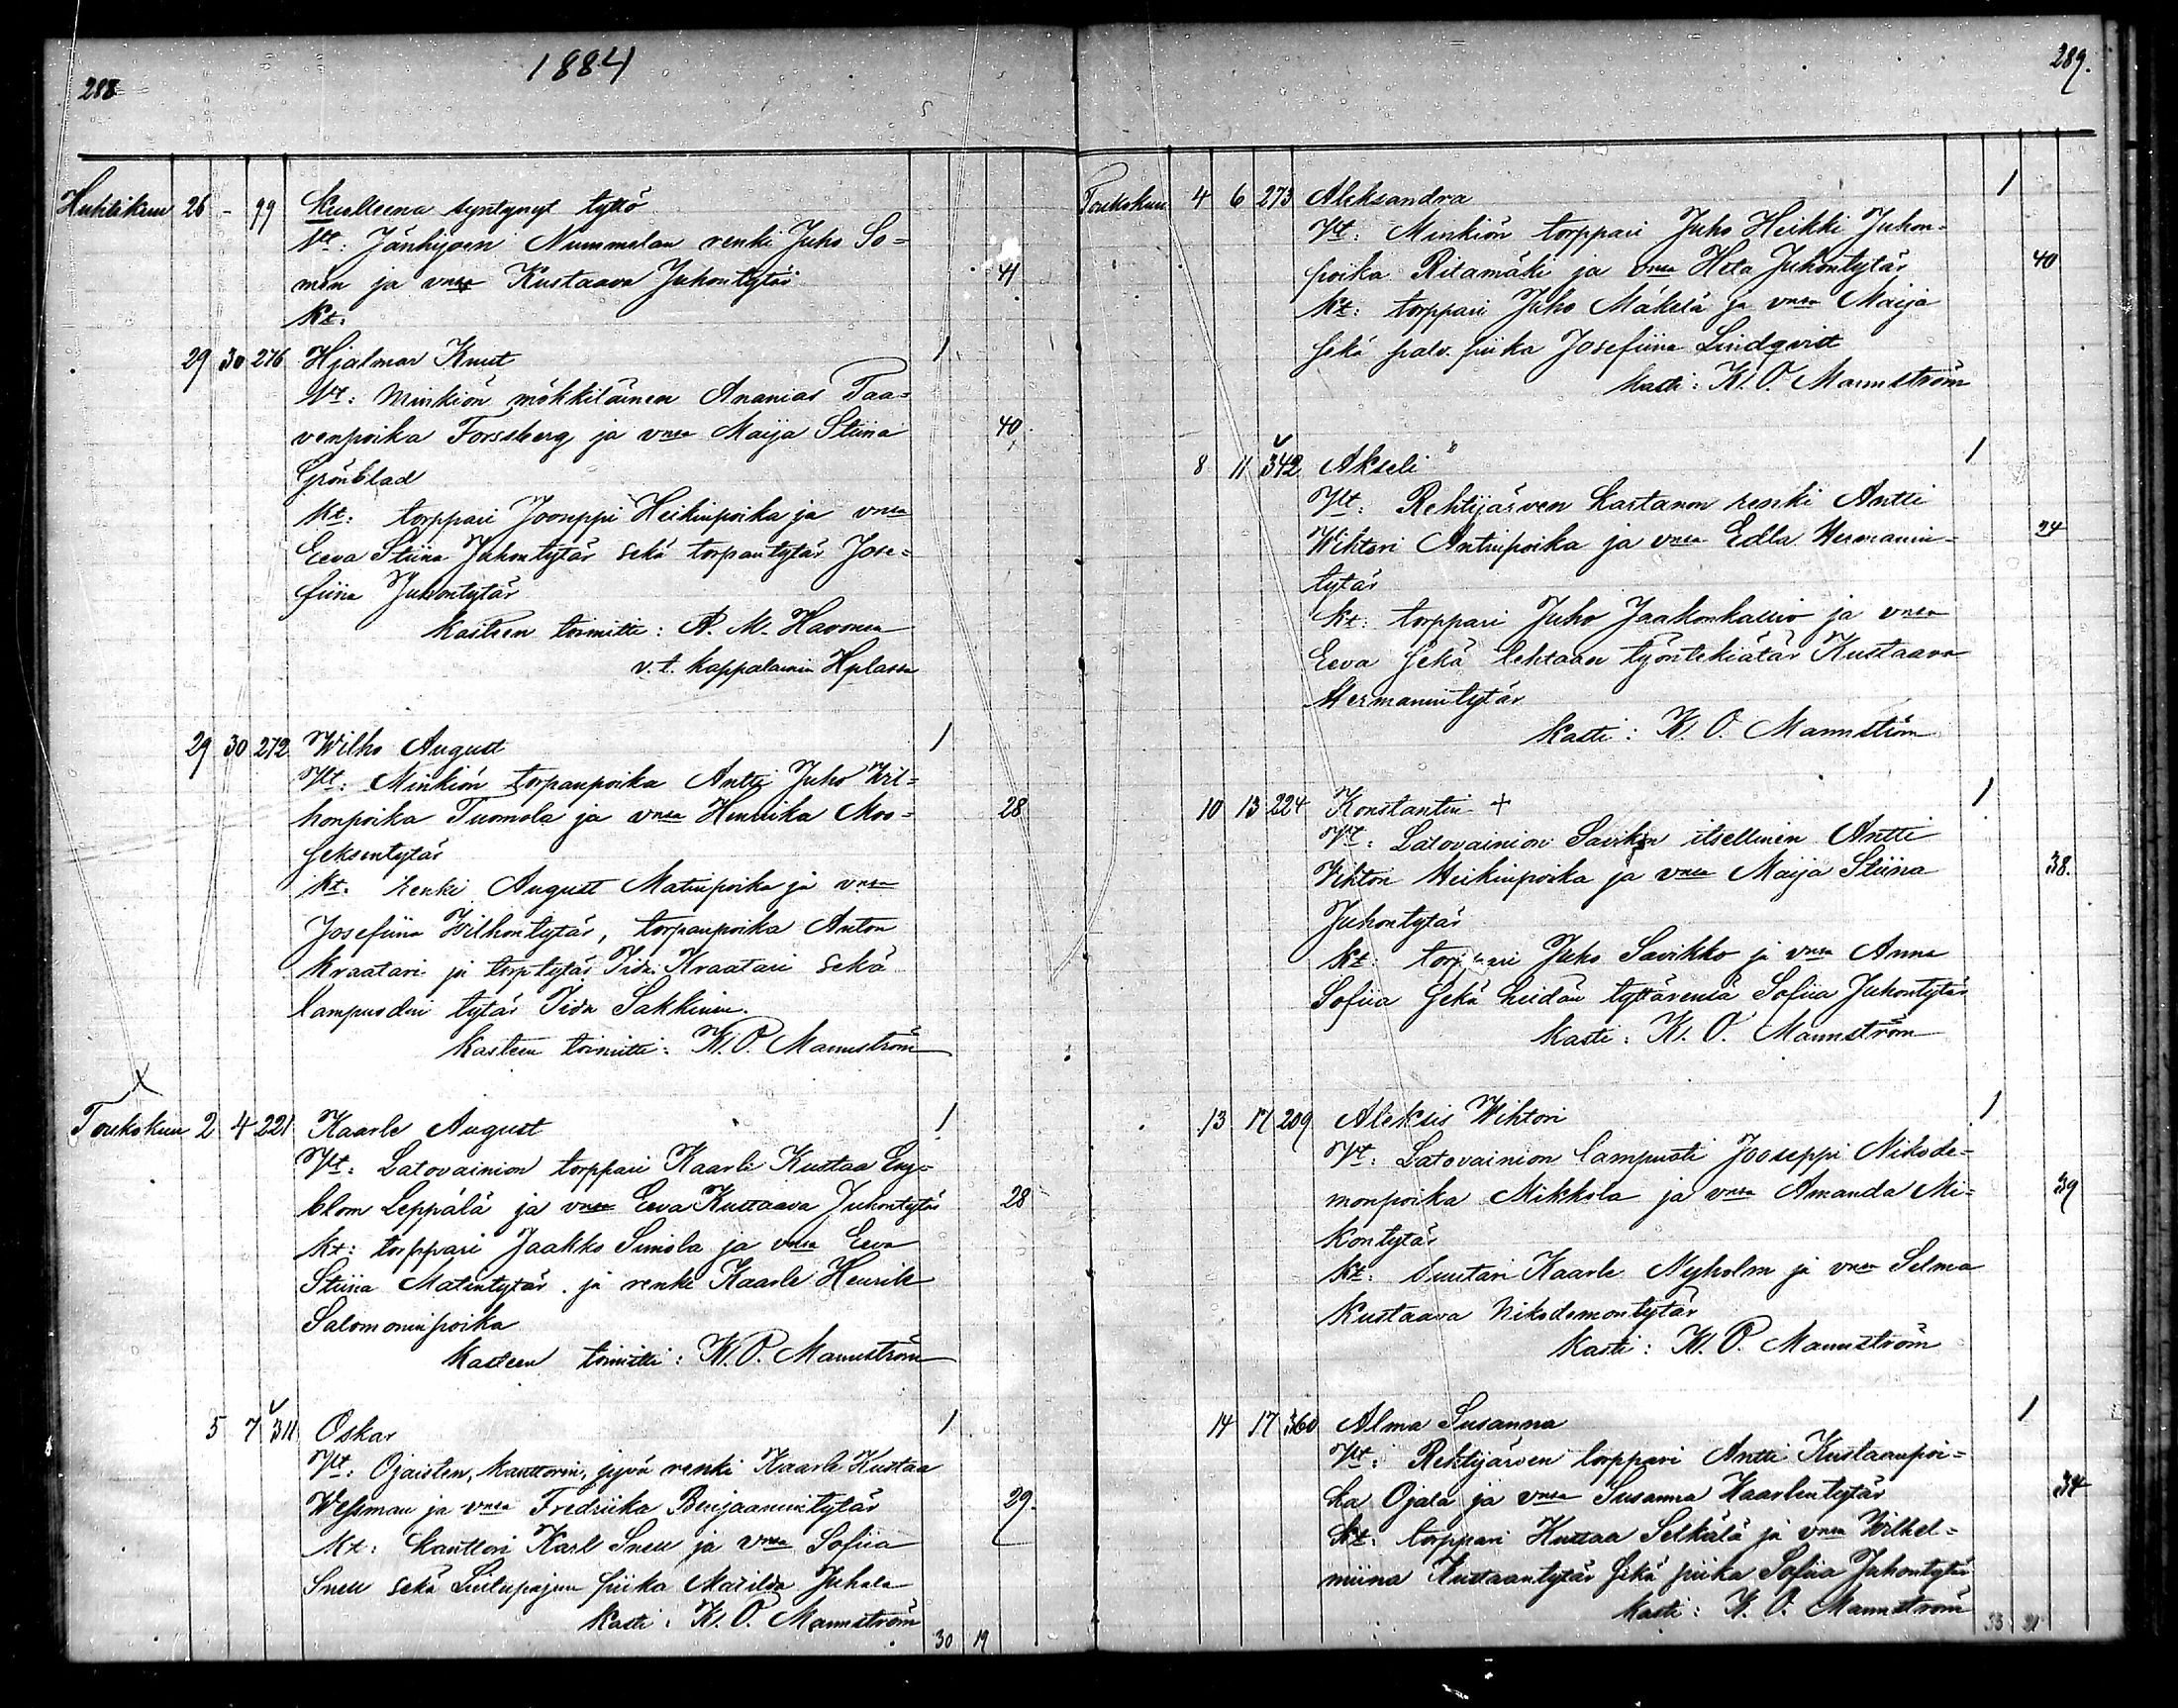 1884
288
Huhtikuu 26 - 99 Kuolleena syntynyt tyttö
Vt: Jänhijoen Nummelan renki Juho So=
men ja vmsa Kustaava Juhontytär 41
Kt:
29 30 276 Hjalmar Knut 1
Vt: Minkiön mökkiläinen Ananias Taa=
venpoika Forssberg ja vmsa Maija Stiina 40
Grönblad
Kt: torppari Jooseppi Heikinpoika ja vmsa
Eeva Stiina Juhontytär sekä torpantytär Jose=
fiina Juhontytär
Kasteen toimitti: A. M. Havonen
v.t. kappalainen Hplassa
29 30 272 Wilho August 1
Vt: Minkiön torpanpoika Antti Juho Wil=
honpoika Tuomola ja vmsa Henriika Moo= 28
seksentytär
Kt: renki August Matinpoika ja vmsa
Josefiina Wilhontytär, torpanpoika Anton
Kraatari ja torp.tytär Iida Kraatari sekä
lampuodin tytär Iida Sakkinen.
Kasteen toimitti: K. O. Mannström
x
Toukokuu 2 4 221 Kaarle August 1
Vt: Latovainion torppari Kaarle Kustaa Eng=
blom Leppälä ja vmsa Eeva Kustaava Juhontytär 28
Kt: torppari Jaakko Simola ja vmsa Eeva
Stiina Matintytär ja renki Kaarle Henrik
Salomoninpoika
Kasteen toimitti: K. O. Mannström
5 7 311 Oskar 1
Vt: Ojaisten, kanttorin, jyvä renki Kaarle Kustaa
Wessman ja vmsa Fredriika Benjaminintytär 29
Kt: kanttori Karl Snell ja vmsa Sofiia
Snell sekä piika Matilda Juhala
Kasti: K. O. Mannström
30 19
289.
Toukokuu 4 6 273 Aleksandra 1
Vt: Minkiön torppari Juho Heikki Juhon=
poika Ritamäki ja vmsa Heta Juhontytär 40
Kt: torppari Juho Mäkelä ja vmsa Maija
sekä palv. piika Josefiina Lindqvist
Kasti: K. O. Mannström
8 11 342 Akseli 1
Vt: Rehtijärven kartanon renki Antti
Wihtori Antinpoika ja vmsa Edla Hermannin= 24
tytär
Kt: torppari Juho Jaakonkallio ja vmsa
Eeva sekä tehtaan työntekiätär Kustaava
Hermannintytär
Kasti: K. O. Mannström
10 13 224 Konstantin + 1
Vt: Latovainion Savikon itsellinen Antti
Vihtori Heikinpoika ja vmsa Maija Stiina 38.
Juhontytär
Kt: torppari Juho Savikko ja vmsa Anna
Sofiia sekä heidän tyttärensä Sofiia Juhontytär
Kasti: K. O. Mannström
13 17 209 Aleksis Wihtori 1
Vt: Latovainion lampuoti Jooseppi Nikode=
monpoika Mikkola ja vmsa Amanda Mi= 39
kontytär
Kt: Suutari Kaarle Nyholm ja vmsa Selma
Kustaava Nikodemontytär
Kasti: K. O. Mannström
14 17 360 Alma Susanna 1
Vt: Rehtijärven torppari Antti Kustaanpoi=
ka Ojala ja vmsa Susanna Kaarlentytär 34
Kt: torppari Kustaa Selkälä ja vmsa Wilhel=
miina Kustaantytär sekä piika Sofiia Juhontytär
Kasti: K. O. Mannström
33 21